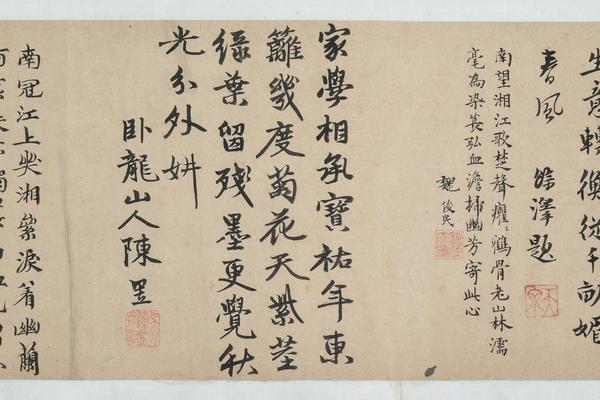 生意轉衡從千畝媚
春風 餘澤題
南望湘江歌楚聲癯〻鶴骨老山林濡
毫為染萇弘血澹掃幽芳寄此心
魏俊民
家學相承寶祐年東
籬幾度菊花天紫莖
綠葉留殘墨更覺秋
光分外妍
卧龍山人陳昱
南冠江上哭湘纍淚着幽蘭